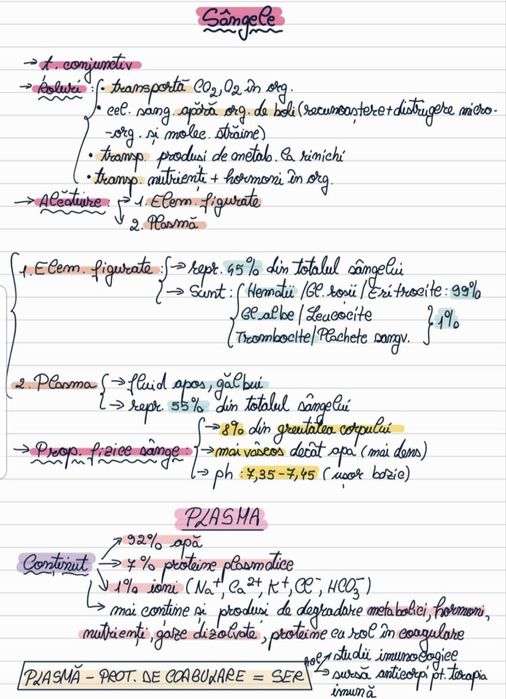 Sângele
→ t. conjunctiv
→ Roluri : • transportă CO2, O2 în org.
• cel. sang apără org. de boli (recunoaștere + distrugere micro-
-org. și molec. străine)
• transp. produși de metab. la rinichi
• transp. nutrienți + hormoni în org.
→ Alcătuire : → 1. Elem. figurate
↘ 2. Plasmă
1. Elem. figurate : → repr. 45% din totalul sângelui
→ Sunt : Hematii / Gl. roșii / Eritrocite : 99%
Gl. albe / Leucocite
Trombocite / Plachete sangv. } 1%
2. Plasma → fluid apos, gălbui
→ repr. 55% din totalul sângelui
→ Prop. fizice sânge : → 8% din greutatea corpului
→ mai vâscos decât apa (mai dens)
→ ph : 7,35 - 7,45 (ușor bazic)
PLASMA
Conținut → 92% apă
→ 7% proteine plasmatice
→ 1% ioni (Na+, Ca2+, K+, Cl-, HCO3-)
→ mai conține și produși de degradare metabolici, hormoni,
nutrienți, gaze dizolvate, proteine cu rol în coagulare
PLASMĂ - PROT. DE COAGULARE = SER rol → studii imunologice
→ sursă anticorpi pt. terapia
imună